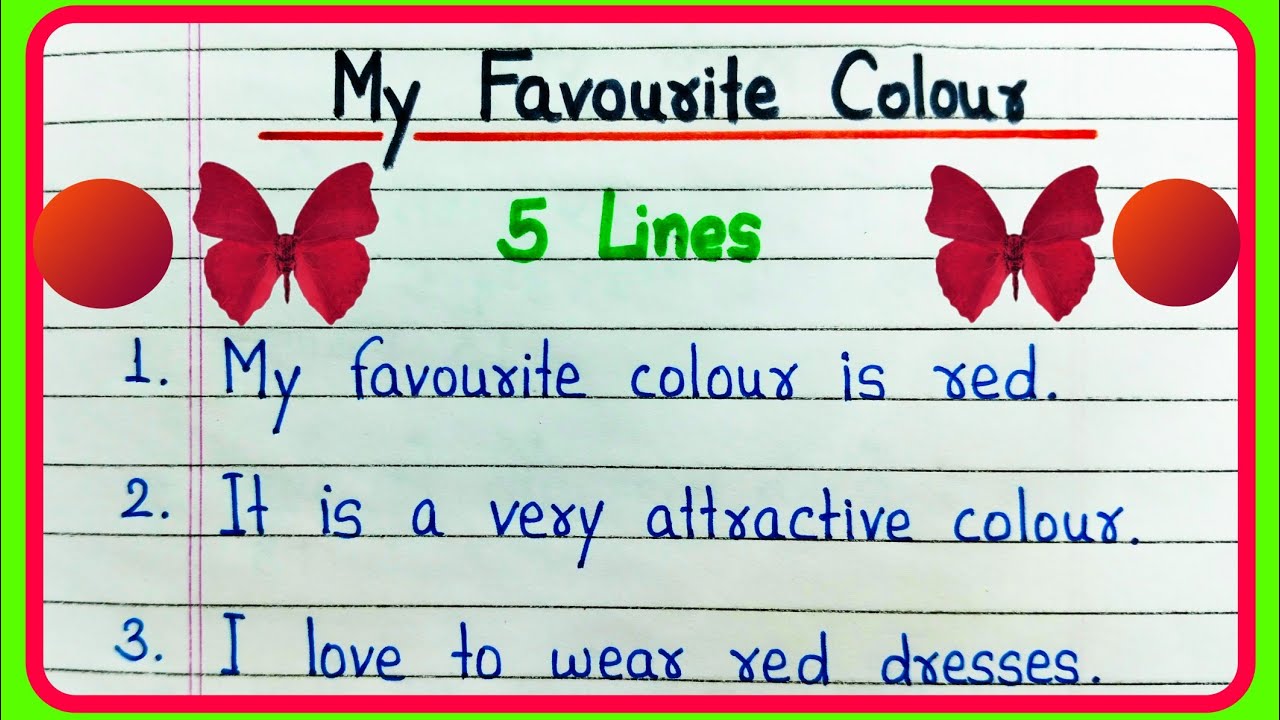 My Favourite Colour
5 Lines
1. My favourite colour is red.
2. It is a very attractive colour.
3. I love to wear red dresses.